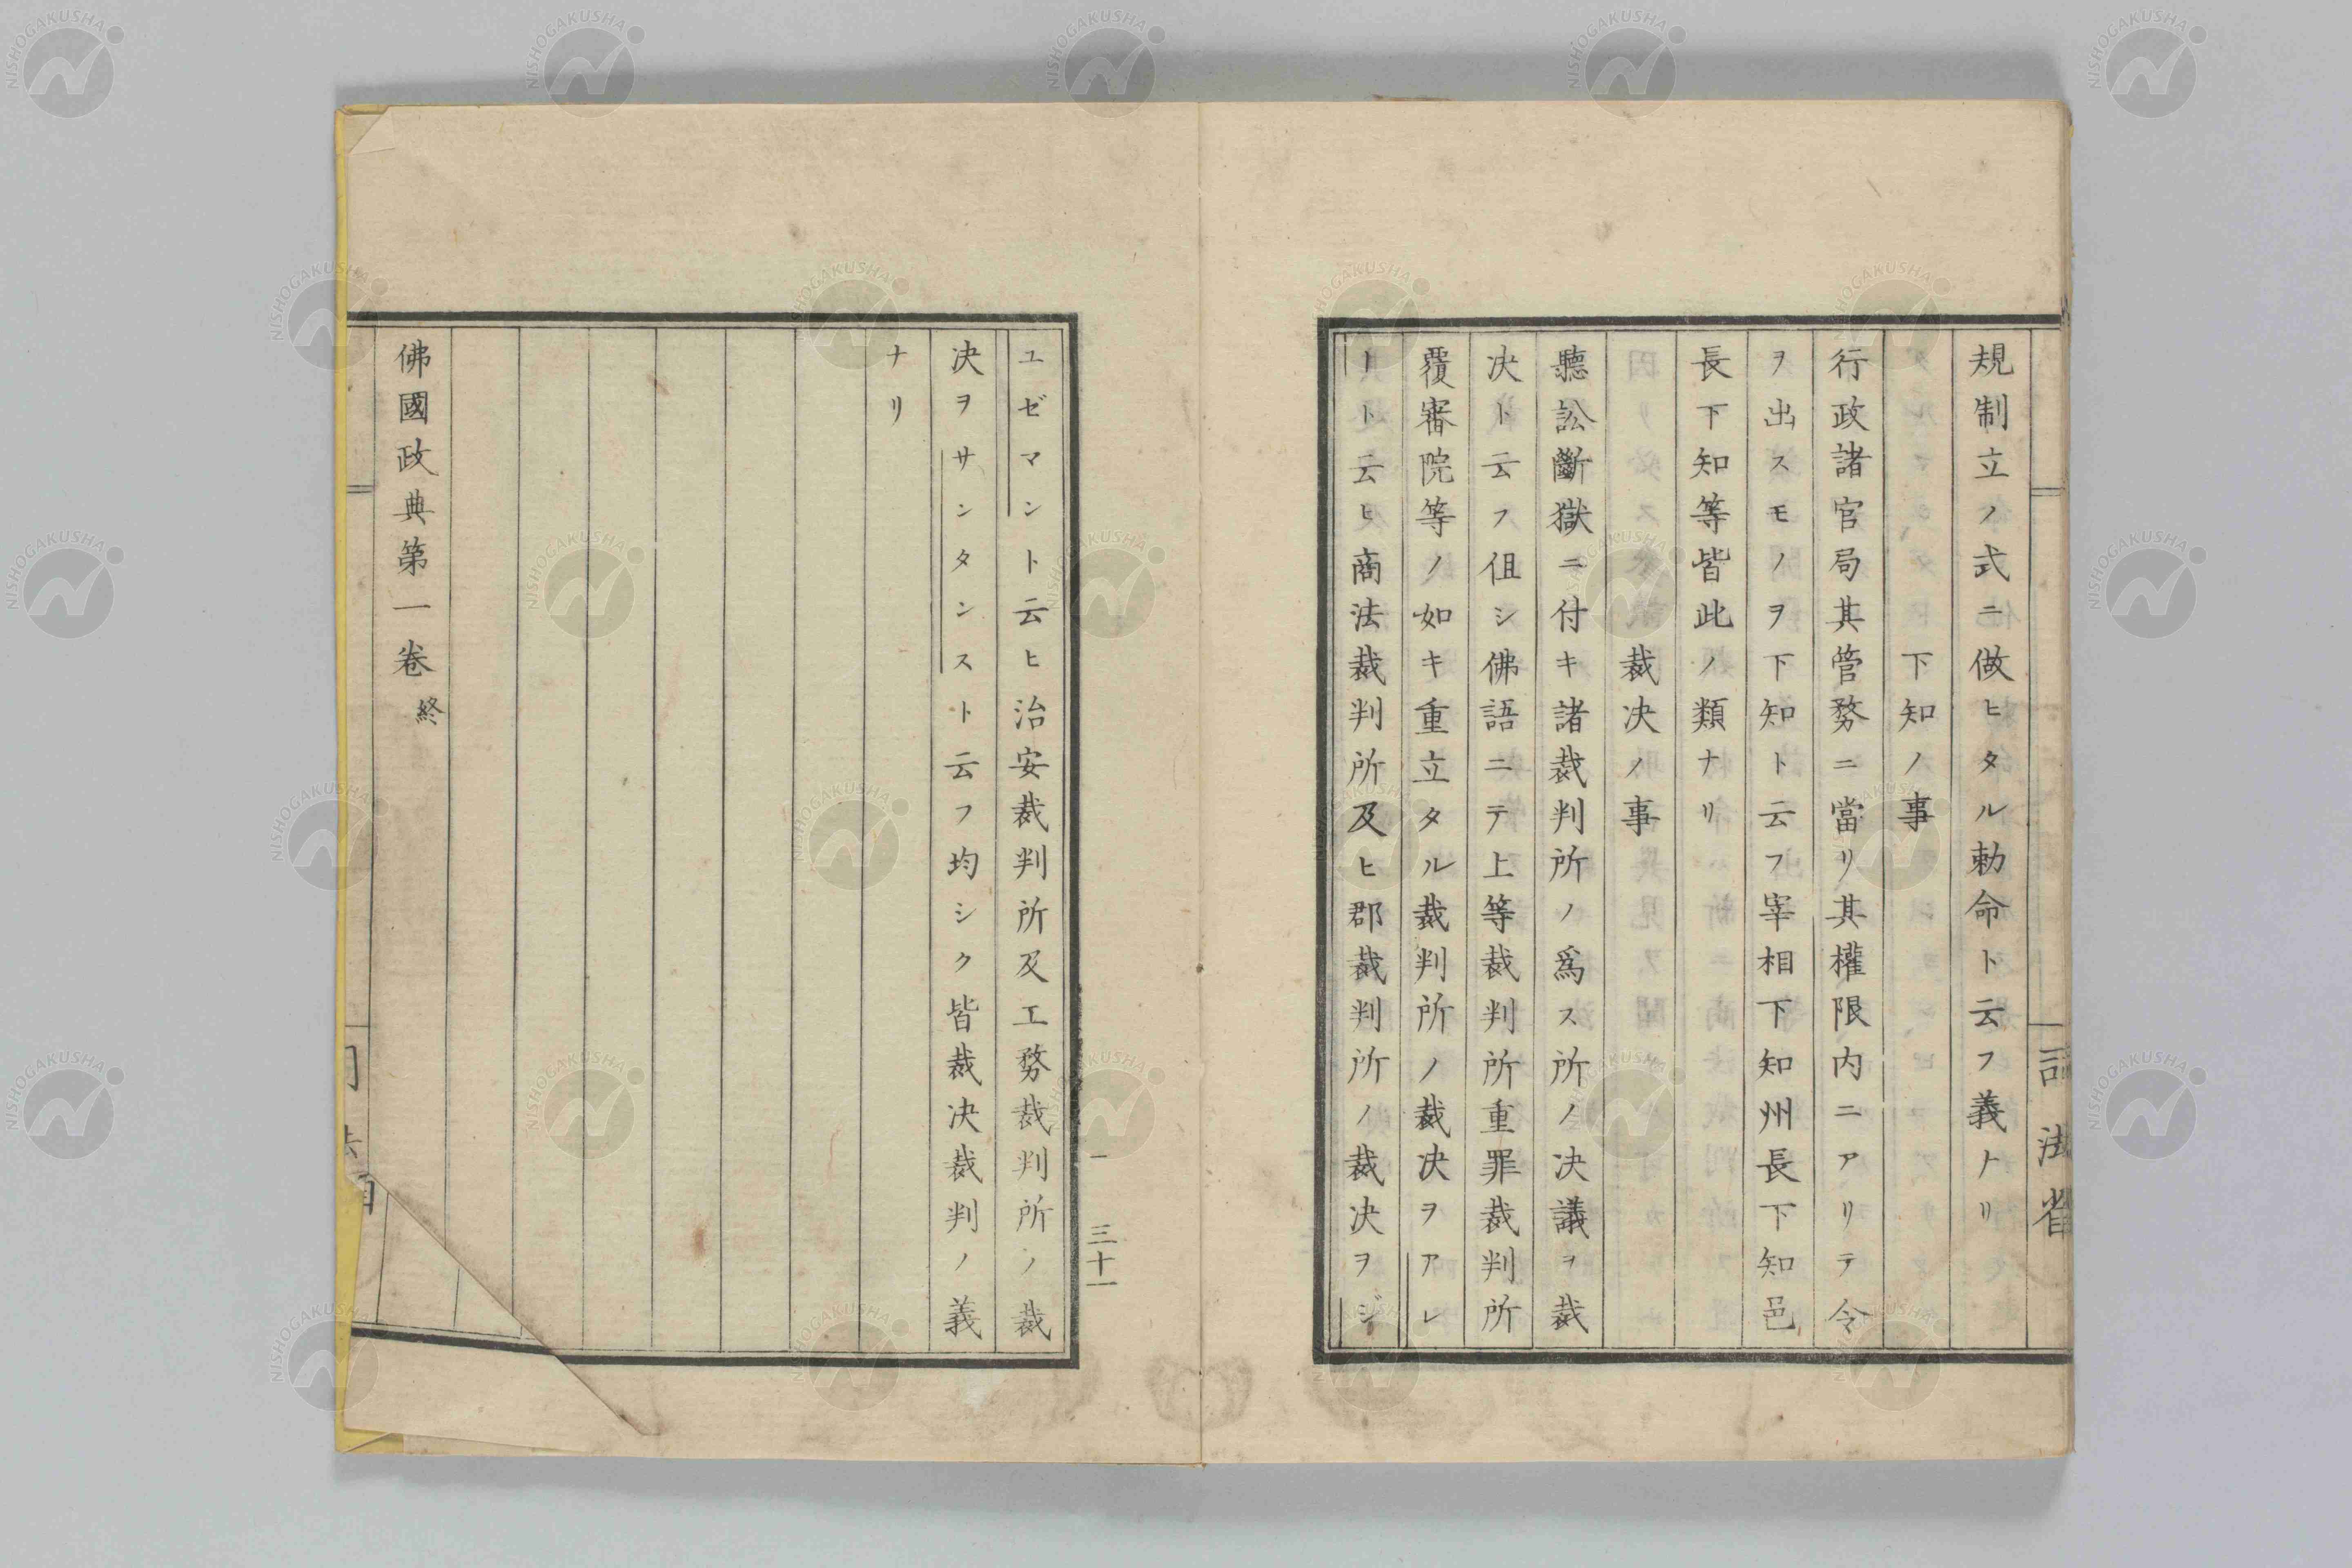 規制立ノ式ニ做ヒタル勅命ト云フ義ナリ
下知ノ事
行政諸官局其管務ニ當リ其權限内ニアリテ令
ヲ出スモノヲ下知ト云フ宰相下知州長下知邑
長下知等皆此ノ類ナリ
裁决ノ事
聽訟斷獄ニ付キ諸裁判所ノ爲ス所ノ决議ヲ裁
决ト云フ但シ佛語ニテ上等裁判所重罪裁判所
覆審院等ノ如キ重立タル裁判所ノ裁决ヲアレ
ートト云ヒ商法裁判所及ヒ郡裁判所ノ裁决ヲジ
ユゼマント云ヒ治安裁判所及工務裁判所ノ裁
决ヲサンタンスト云フ均シク皆裁决裁判ノ義
ナリ
佛國政典第一卷 終
一 三十一
司法省
NISHOGAKUSHA